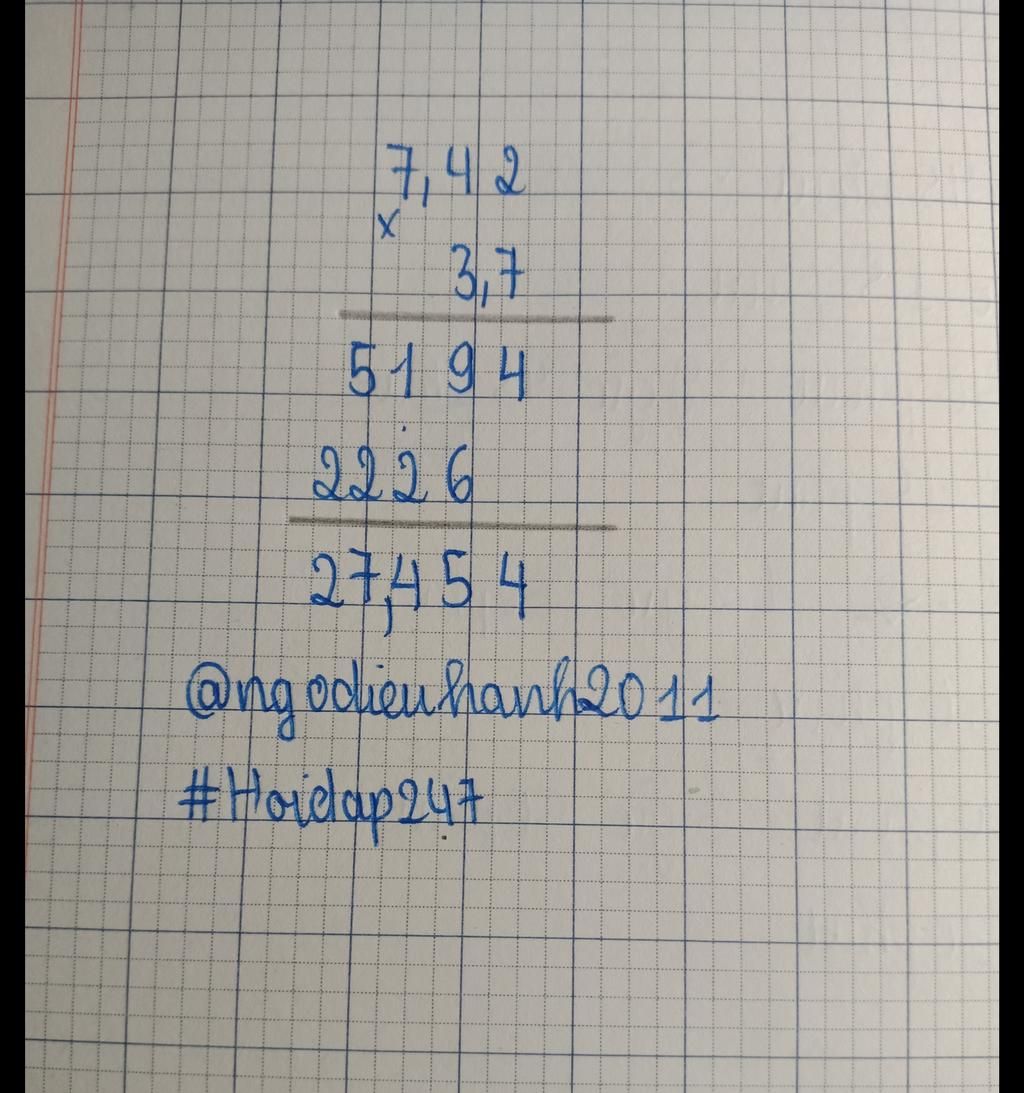 7,42
x
3,7
5194
2226
27,454
@ngodieuhanh2011
#Hoidap247